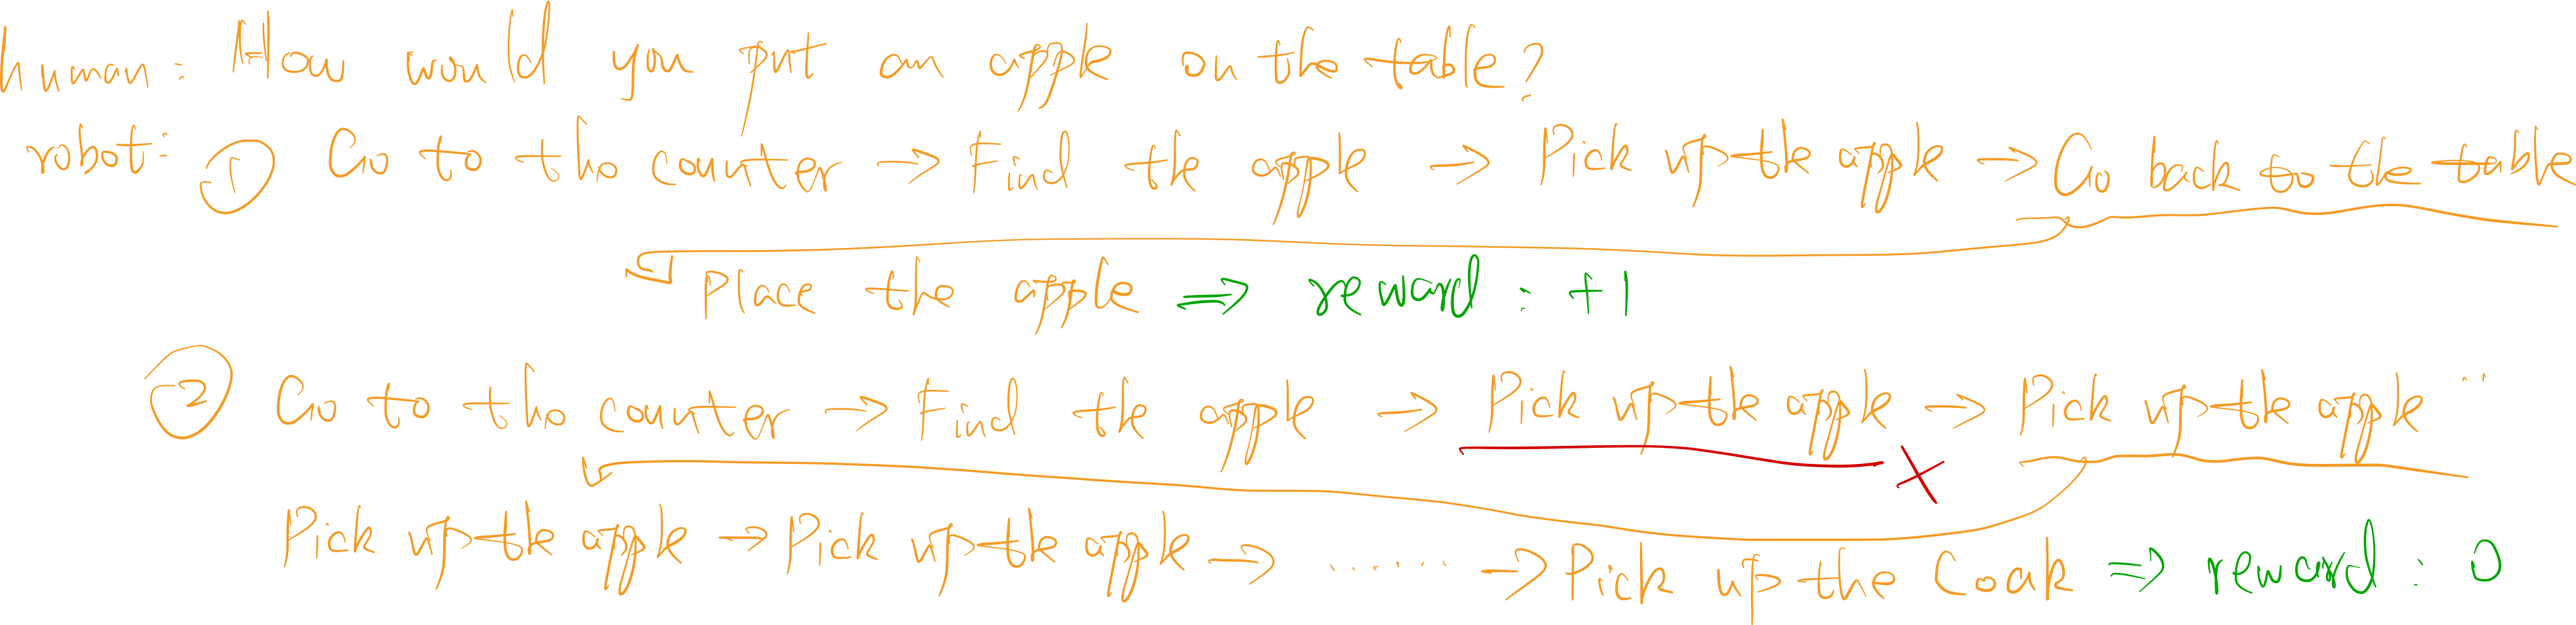 human: How would you put an apple on the table?
robot: ① Go to the counter → Find the apple → Pick up the apple → Go back to the table
Place the apple ⇒ reward: +1
② Go to the counter → Find the apple → Pick up the apple → Pick up the apple ..
Pick up the apple → Pick up the apple → ....... → Pick up the Coak ⇒ reward: 0